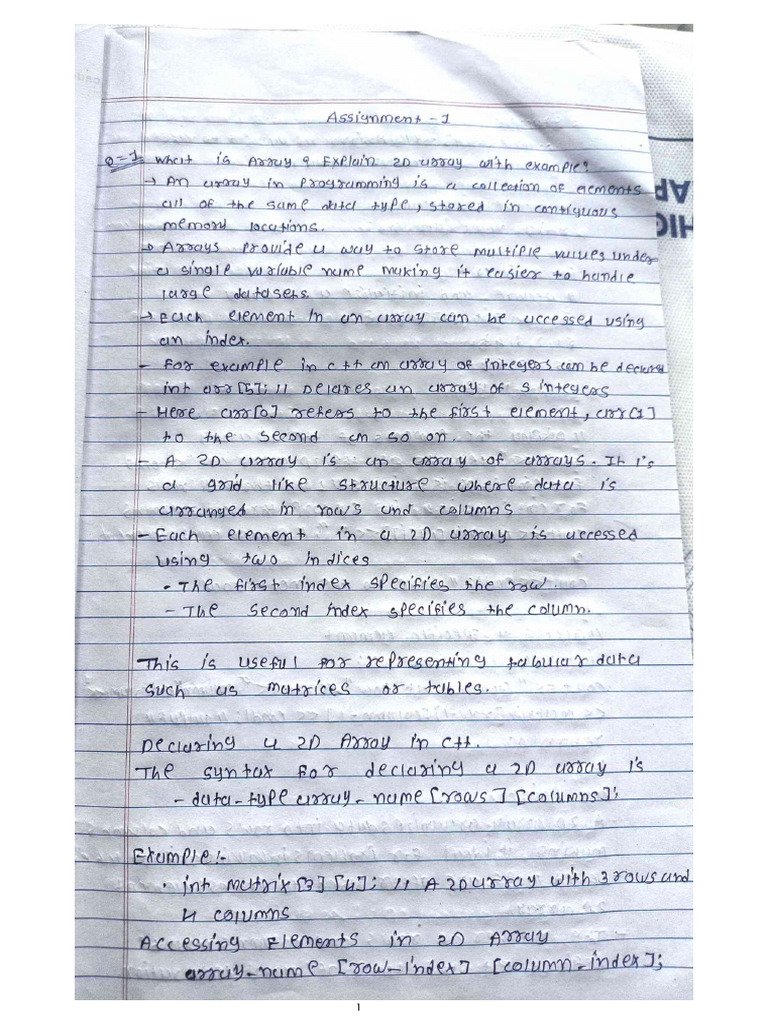 Assignment - 1
Q=1 What is Array & Explain 2D array with example?
→ An array in programming is a collection of elements
all of the same data type, stored in contiguous
memory locations.
→ Arrays provide a way to store multiple values under
a single variable name making it easier to handle
large datasets.
→ Each element in an array can be accessed using
an index.
- For example in c++ an array of integers can be declared
int arr[5]; // Delares an array of 5 integers
- Here arr[0] refers to the first element, arr[1]
to the second an so on.
- A 2D array is an array of arrays. It is
a grid like structure where data is
arranged in rows and columns
- Each element in a 2D array is accessed
using two indices
- The first index specifies the row.
- The second index specifies the column.
This is useful for representing tabular data
such as matrices or tables.
Declaring a 2D Array in c++.
The syntax for declaring a 2D array is
- data-type array-name [rows] [columns];
Example:-
• int matrix[3][4]; // A 2D array with 3 rows and
4 columns
Accessing Elements in 2D Array
array-name [row-index] [column-index];
1